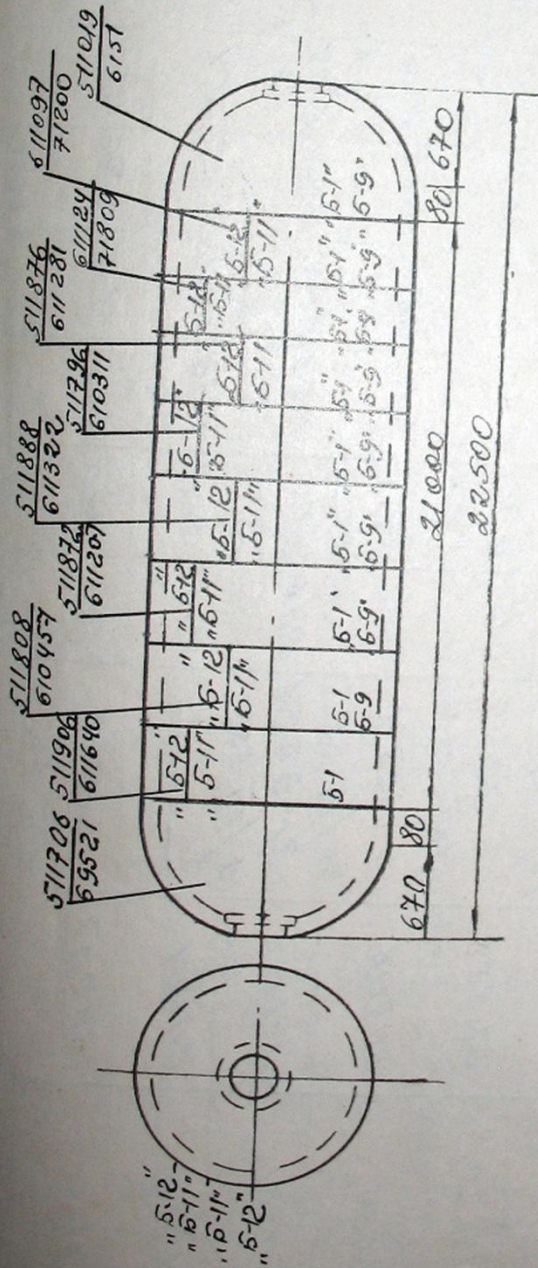 511706
69521
511906
611640
511808
610457
511872
611207
511888
611322
511796
610311
511876
611281
611124
71809
611097
71200
511019
6151
"Б-12"
"Б-11"
"Б-12"
"Б-11"
"Б-12"
"Б-11"
"Б-12"
"Б-11"
"Б-12"
"Б-11"
Б-12
Б-11
Б-12
"Б-11
Б-12
"Б-11"
Б-1
Б-1
Б-9
Б-1
Б-9
Б-1"
Б-9
Б-1"
Б-9
Б-1"
Б-9"
Б-1"
Б-9
Б-1"
Б-9"
Б-1"
Б-9"
670
80
21000
80
670
22500
"Б-12"
"Б-11"
"Б-11"
"Б-12"